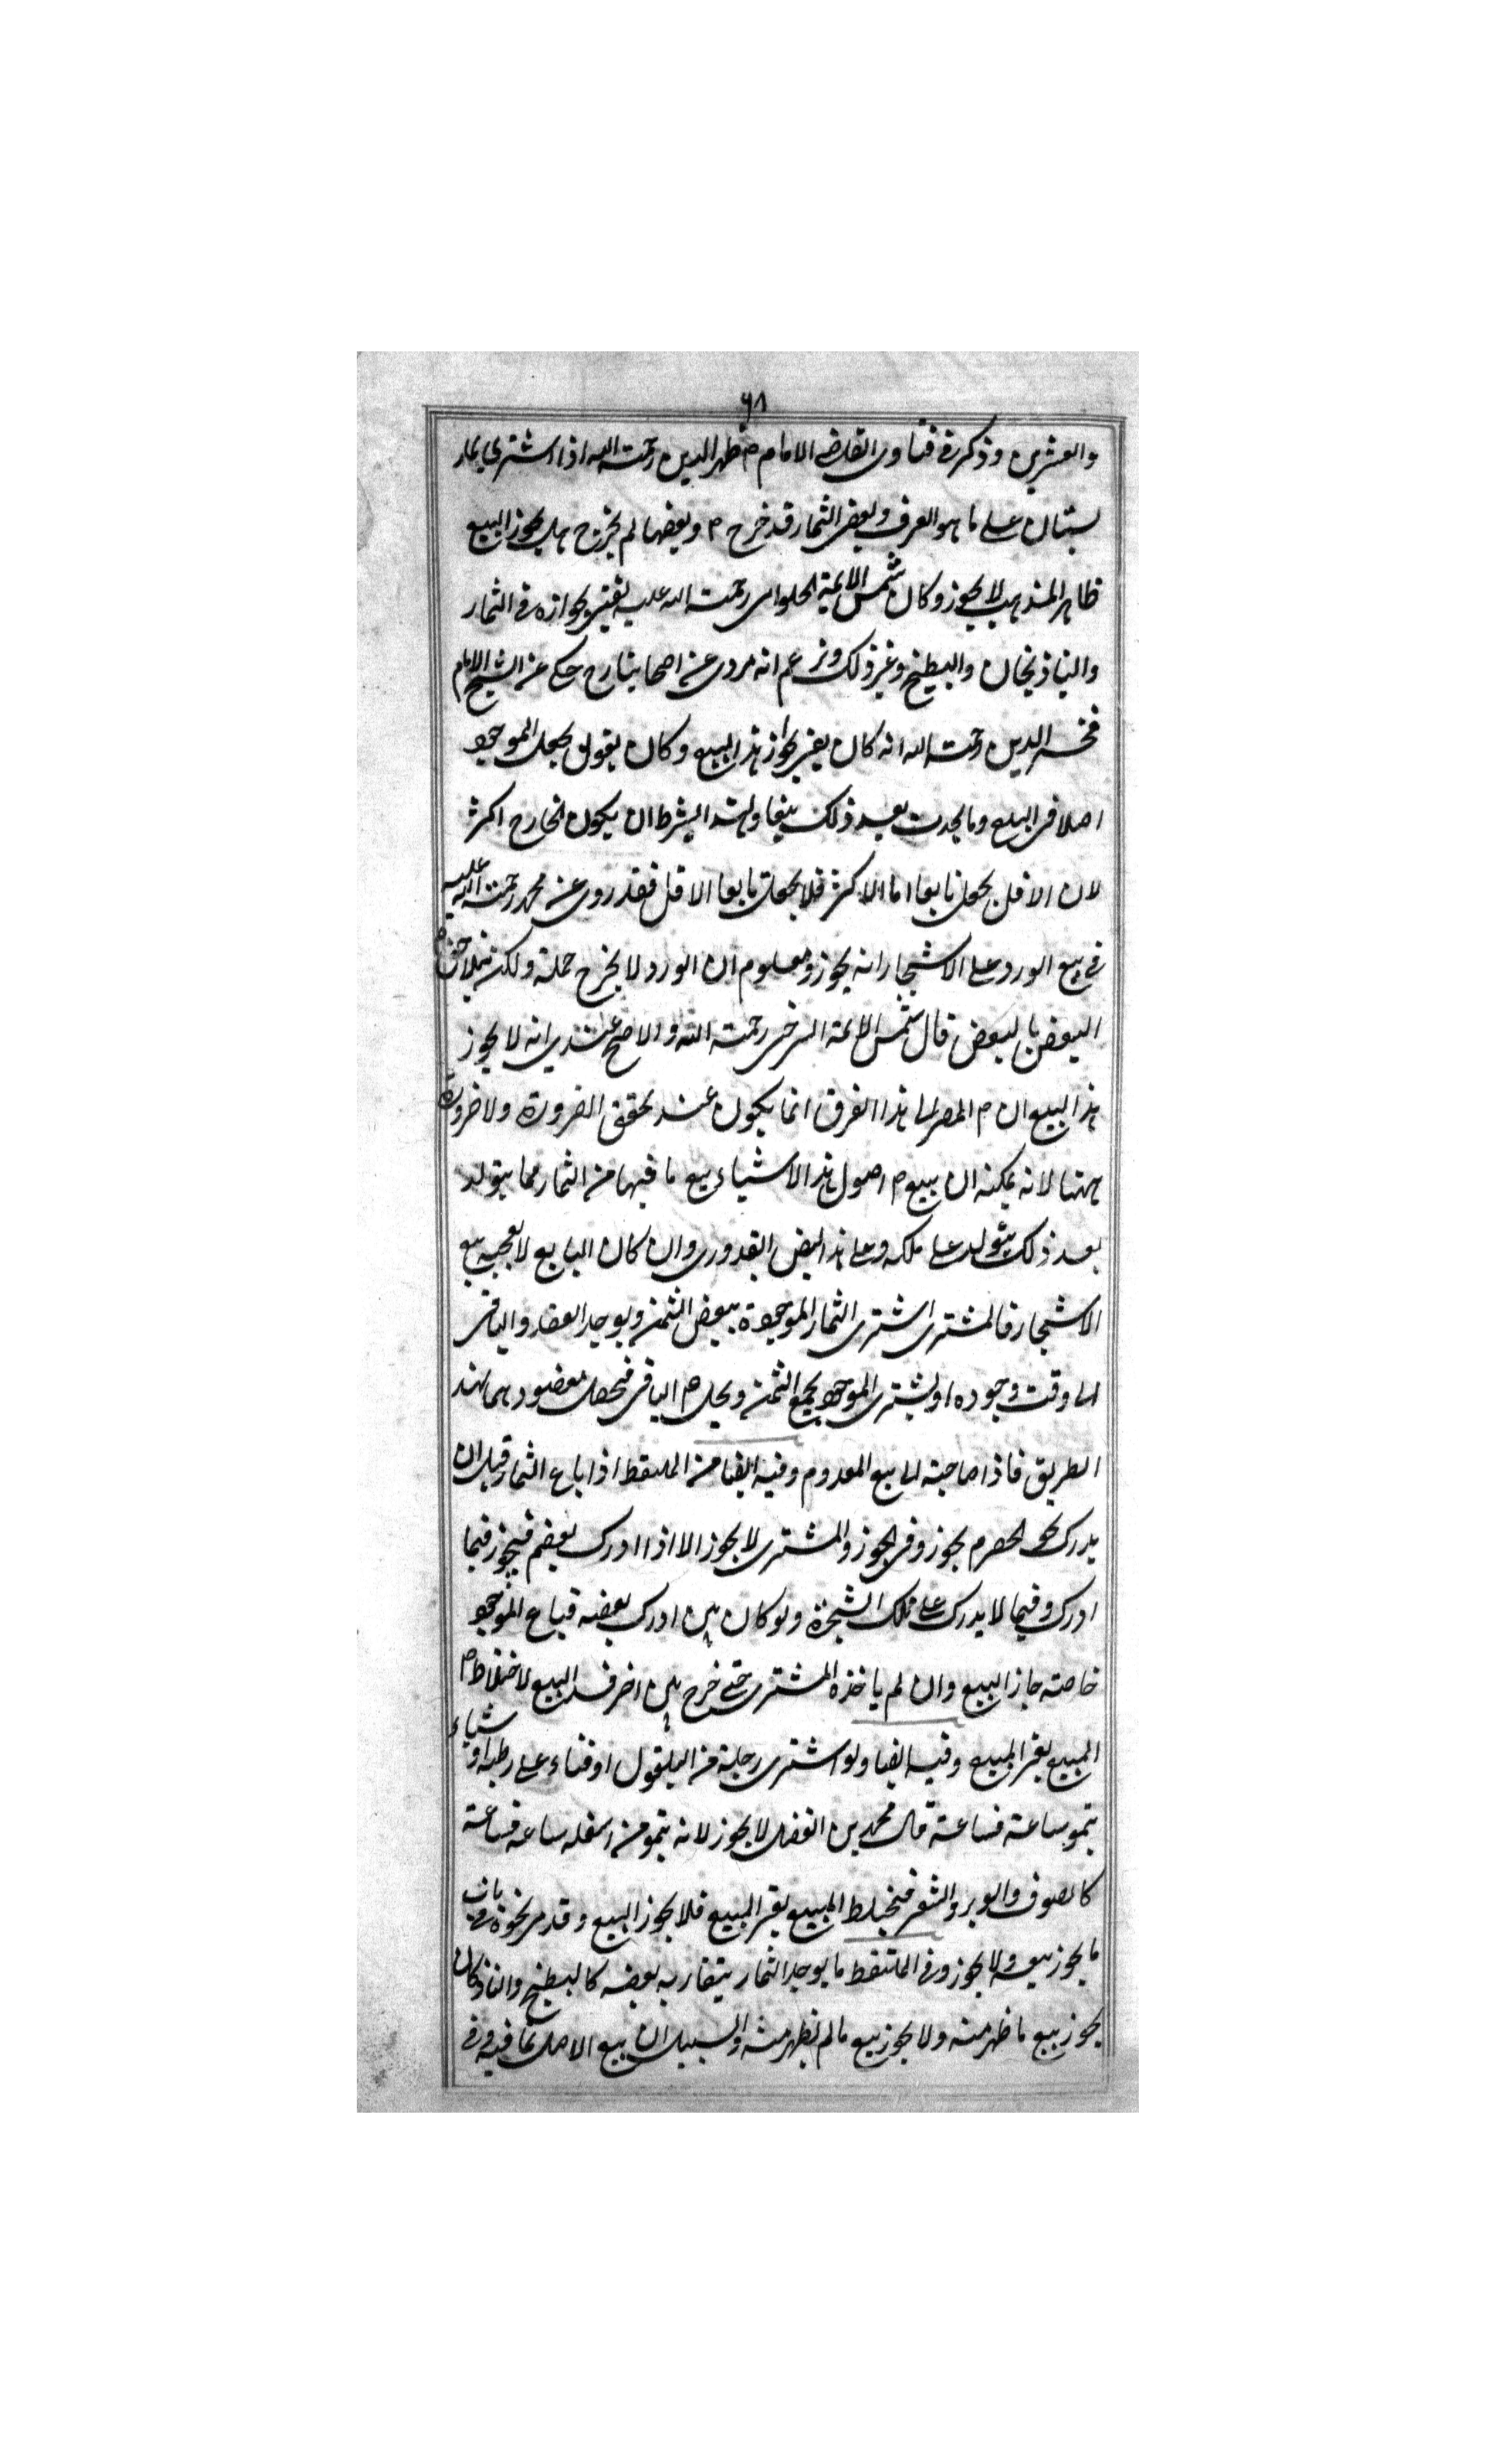 ٦٨
والعشرين وذكر في فتاوى القاضي الامام ظهير الدين رحمة الله اذا اشترى ثمار
بستان على ما هو العرف وبعض الثمار قد خرج م وبعضها لم يخرج هل يجوز البيع
ظاهر المذهب لا يجوز وكان شمس الائمة الحلوانى رحمة الله عليه يفتى بجوازه في الثمار
والباذنجان والبطيخ وغير ذلك وزعم انه مروى عن اصحابنا رح حكى عن الشيخ الامام
فخر الدين رحمة الله انه كان يفتى بجواز هذا البيع وكان يقول يجعل الموجود
اصلا فى البيع وما يحدث بعد ذلك تبعا ولهذا يشرط ان يكون الخارج اكثر
لان الاقل يجعل تابعا اما الاكثر فلا يجعل تابعا الاقل فقد روى عن محمد رحمة الله عليه
في بيع الورد على الاشجار انه يجوز ومعلوم ان الورد لا يخرج جملة ولكن يتلاحق
البعض بالبعض قال شمس الائمة السرخسى رحمة الله والاصح عندى انه لا يجوز
هذا البيع ان م المصير الى هذا الفرق انما يكون عند تحقق الضرورة ولا ضرورة
ههنا لانه يمكنه ان يبيع م اصول هذا الاشياء بيع ما فيها من الثمار مما يتولد
بعد ذلك يتولد على ملكه وعلى هذا بعض القدورى وان كان البايع لا يعجبه بيع
الاشجار فالمشترى اشترى الثمار الموجودة ببعض الثمن ويوجد العقد والباقى
الى وقت وجوده او يشترى الموجود بجميع الثمن ويحل م الباقى فيحصل مقصودهما بهذا
الطريق فاذا حاجته الى بيع المعدوم وفيه ايضا من الملتقط اذا باع الثمار قبل ان
يدرك نحو الحصرم يجوز وفى الجوز والمشترى لا يجوز الا اذا ادرك بعضه فيجوز فيما
ادرك وفيما لا يدرك على تلك الشجرة ولو كان تين ادرك بعضه فباع الموجود
خاصة جاز البيع وان لم ياخذه المشترى حتى خرج تين اخر فسد البيع لاختلاط م
المبيع بغير المبيع وفيه ايضا ولو اشترى رجلة من البقول او قثاء على رطبة او شياء
ينمو ساعة فساعة قال محمد بن الفضل لا يجوز لانه ينمو من اسفله ساعة فساعة
كالصوف والوبر والشعر فيختلط المبيع بغير المبيع فلا يجوز البيع وقد مر نحوه فى باب
ما يجوز بيعه ولا يجوز وفى الملتقط ما يوجد الثمار يتقارب بعضه كالبطيخ والباذنجان
يجوز بيع ما ظهر منه ولا يجوز بيع ما لم يظهر منه والسبيل ان بيع الاصل بما فيه وفى